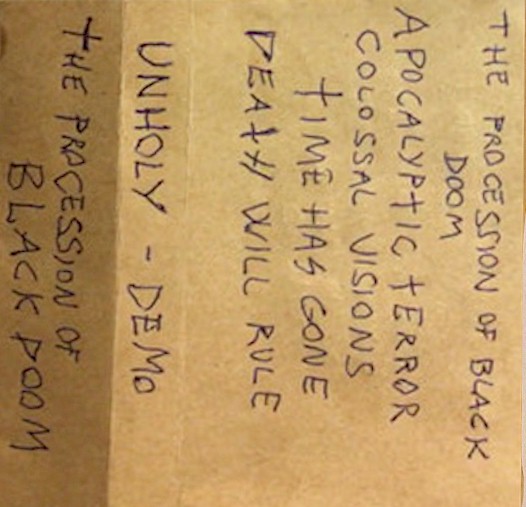 THE PROCESSION OF BLACK
DOOM
APOCALYPTIC TERROR
COLOSSAL VISIONS
TIME HAS GONE
DEATH WILL RULE
UNHOLY - DEMO
THE PROCESSION OF
BLACK DOOM